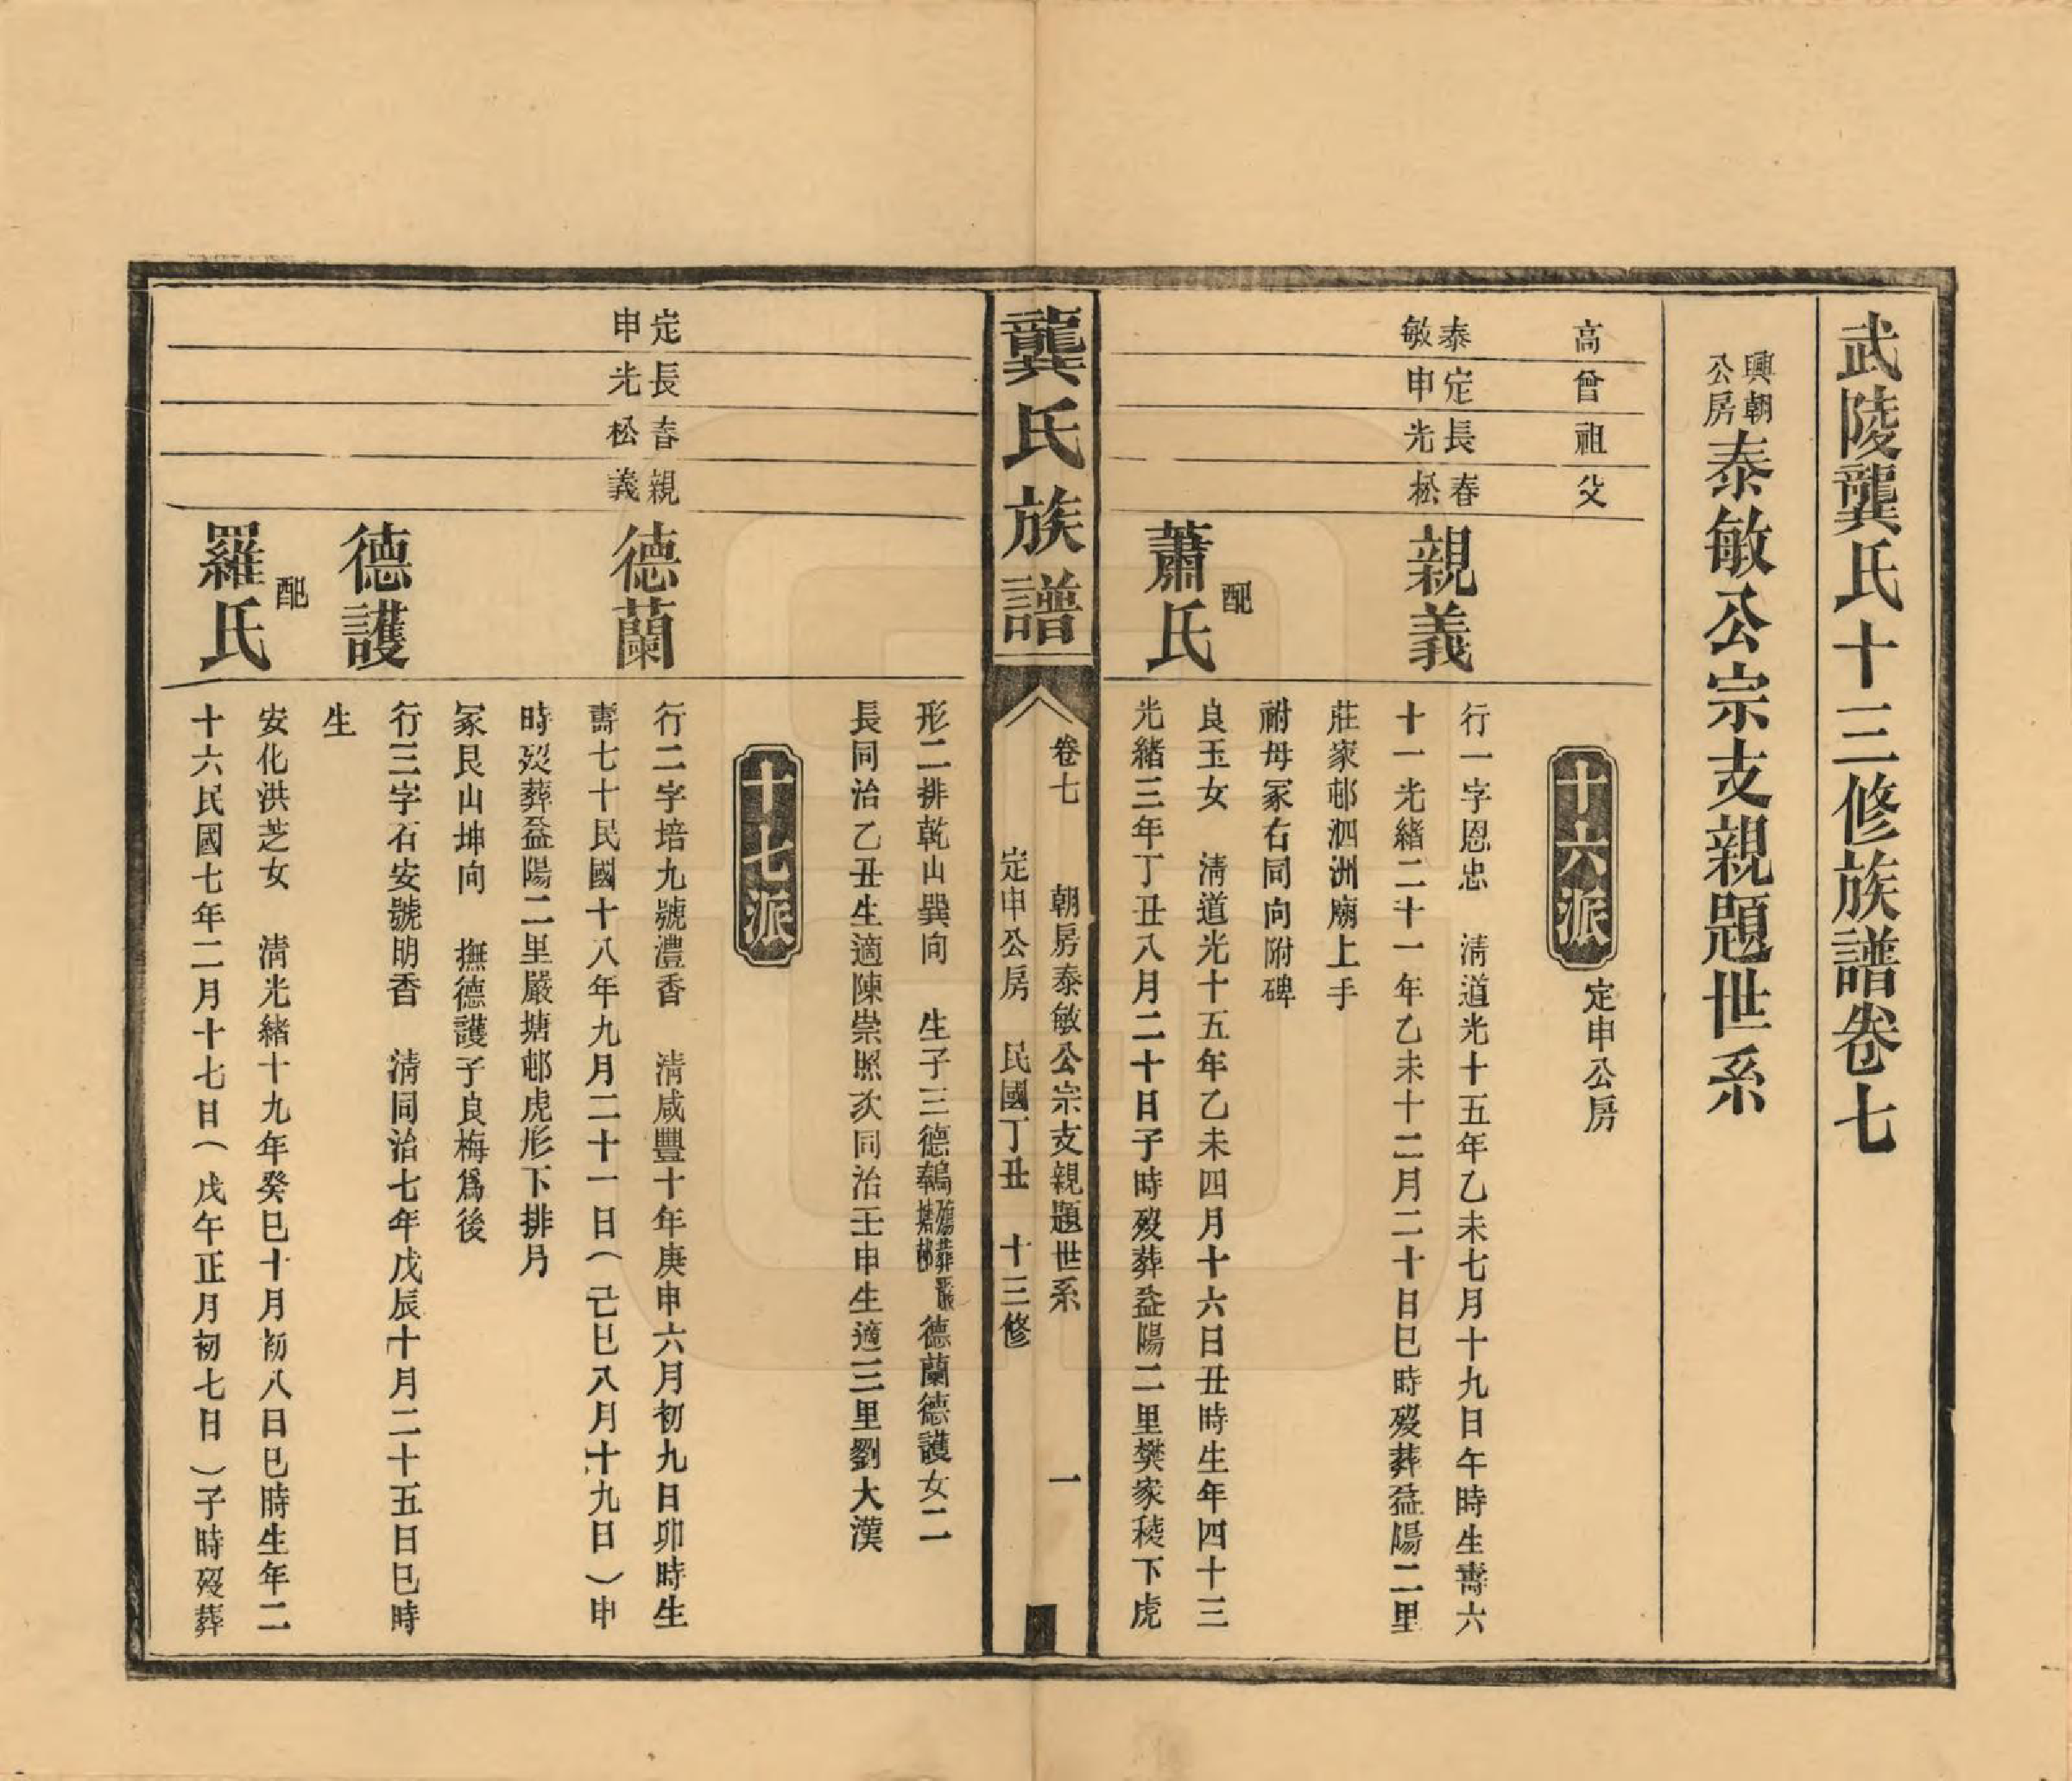 武陵龔氏十三修族譜卷七
興朝公房 泰敏公宗支親題世系
高 曾 祖 父
十六派 定申公房
泰敏 定申 長光 春松
親義
行一字恩忠 淸道光十五年乙未七月十九日午時生壽六
十一光緒二十一年乙未十二月二十日巳時歿葬益陽二里
莊家邨泗洲廟上手
祔母冢右同向附碑
配蕭氏
良玉女 淸道光十五年乙未四月十六日丑時生年四十三
光緒三年丁丑八月二十日子時歿葬益陽二里樊家稜下虎
龔氏族譜
卷七 朝房泰敏公宗支親題世系 一
定申公房 民國丁丑 十三修
形二排乾山巽向 生子三德鵪殤葬嚴塘邨德蘭德護女二
長同治乙丑生適陳崇照次同治壬申生適三里劉大漢
十七派
定申 長光 春松 親義
德蘭
行二字培九號澧香 淸咸豐十年庚申六月初九日卯時生
壽七十民國十八年九月二十一日(己巳八月十九日)申
時歿葬益陽二里嚴塘邨虎形下排月
冢艮山坤向 撫德護子良梅爲後
德護
行三字石安號明香 淸同治七年戊辰十月二十五日巳時
生
配羅氏
安化洪芝女 淸光緒十九年癸巳十月初八日巳時生年二
十六民國七年二月十七日(戊午正月初七日)子時歿葬